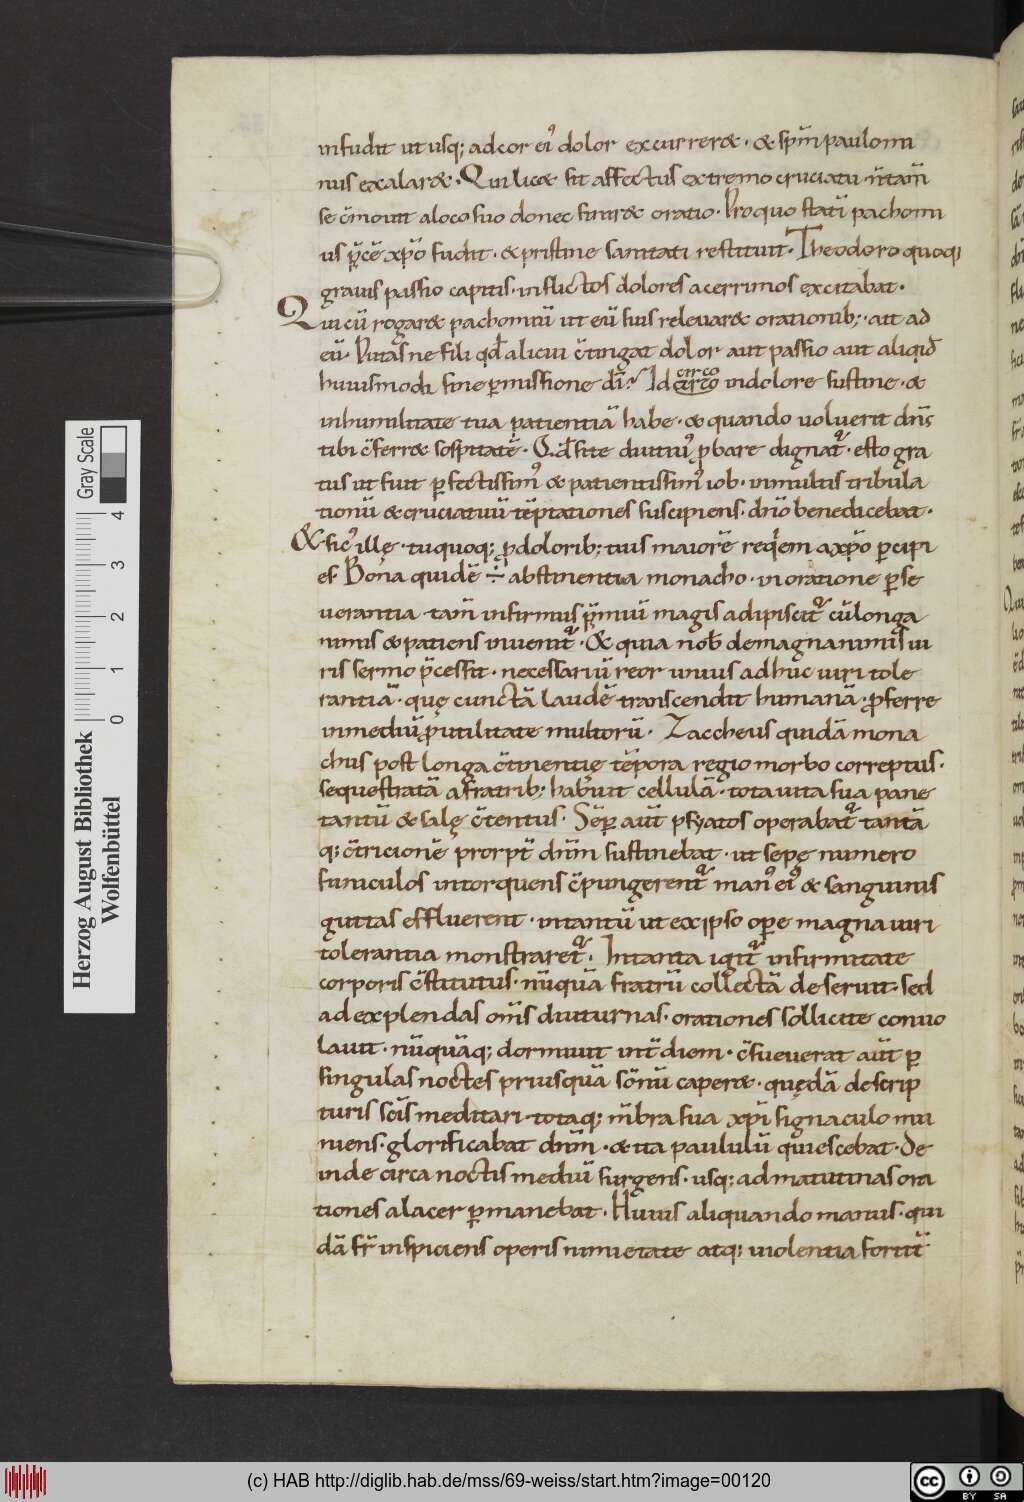 infudit ut usq; ad cor ei᾽ dolor excurreret · & sp̄m paulomi
nus exalaret · Qui licet sit affectus extremo cruciatu · n̄ tam̄
se c̄mouit a loco suo donec finiret oratio · Pro quo statī pachomi
us p̄cē xp̄o fudit · & pristine sanitati restituit · Theodoro quoq;
grauis passio capitis · inflictos dolores acerrimos excitabat ·
Qui cū rogaret pachomiū ut eū suis releuaret orationib; · ait ad
eū · Putas ne fili qđ alicui c̄tingat dolor aut passio aut aliqid
huiusmodi sine ꝑmissione dī? Idcirco circo in dolore sustine · &
in humilitate tua patientiā habe · & quando uoluerit dn̄s
tibi c̄ferret sospitatē · Qđ si te diutiꝰ ꝓbare dignat᷑ · esto gra
tus ut fuit ꝑfectissimꝰ & patientissimꝰ iob · in multis tribula
tionū & cruciatuū tēptationes suscipiens · dn̄o benedicebat ·
& sic᾽ ille · tu quoq; ꝓ dolorib; tuis maiorē reqiem a xp̄o ꝑcipi
es · Bona quidē ÷ abstinentia monacho · in oratione ꝑse
uerantia · tam̄ infirmus p̄miū magis adipiscit᷑ cū longa
nimis & patiens inuenit᷑ · & quia nob̄ de magnanimis ui
ris sermo p̄cessit · necessariū reor unius adhuc uiri tole
rantiā · quę cunctā laudē transcendit humanā · ꝓferre
in mediū ꝓ utilitate multorū · Zaccheus quidā mona
chus post longa c̄tinentię tēpora regio morbo correptus ·
sequestratā a fratrib; habuit cellulā · tota uita sua pane
tantū & sale c̄tentus · Sēꝑ aūt psyatos operabat᷑ tantā
q; c̄tricionē propt̄ dn̄m sustinebat · ut sepe numero
funiculos intorquens c̄pungerent᷑ manꝰ eiꝰ & sanguinis
guttas effluerent · in tantū ut ex ipso oꝑe magna uiri
tolerantia monstraret᷑ · In tanta igit᷑ infirmitate
corporis c̄stitutus · nūquā fratrū collectā deseruit · sed
ad explendas om̄s diuturnas · orationes sollicite conuo
lauit · nūquāq; dormiuit int̄ diem · c̄sueuerat aūt ꝑ
singulas noctes priusquā sōnū caperet · quędā de scrip
turis sc̄is meditari · totaq; m̄bra sua xp̄i signaculo mu
niens · glorificabat dn̄m · & ita paululū quiescebat · De
inde circa noctis mediū surgens · usq; ad matutinas ora
tiones alacer ꝑmanebat · Huius aliquando manus · qui
dā fr̄ inspiciens operis nimietate atq; uiolentia fortit̄
Gray Scale
4
3
2
1
0
Herzog August Bibliothek
Wolfenbüttel
(c) HAB http://diglib.hab.de/mss/69-weiss/start.htm?image=00120
cc
BY SA